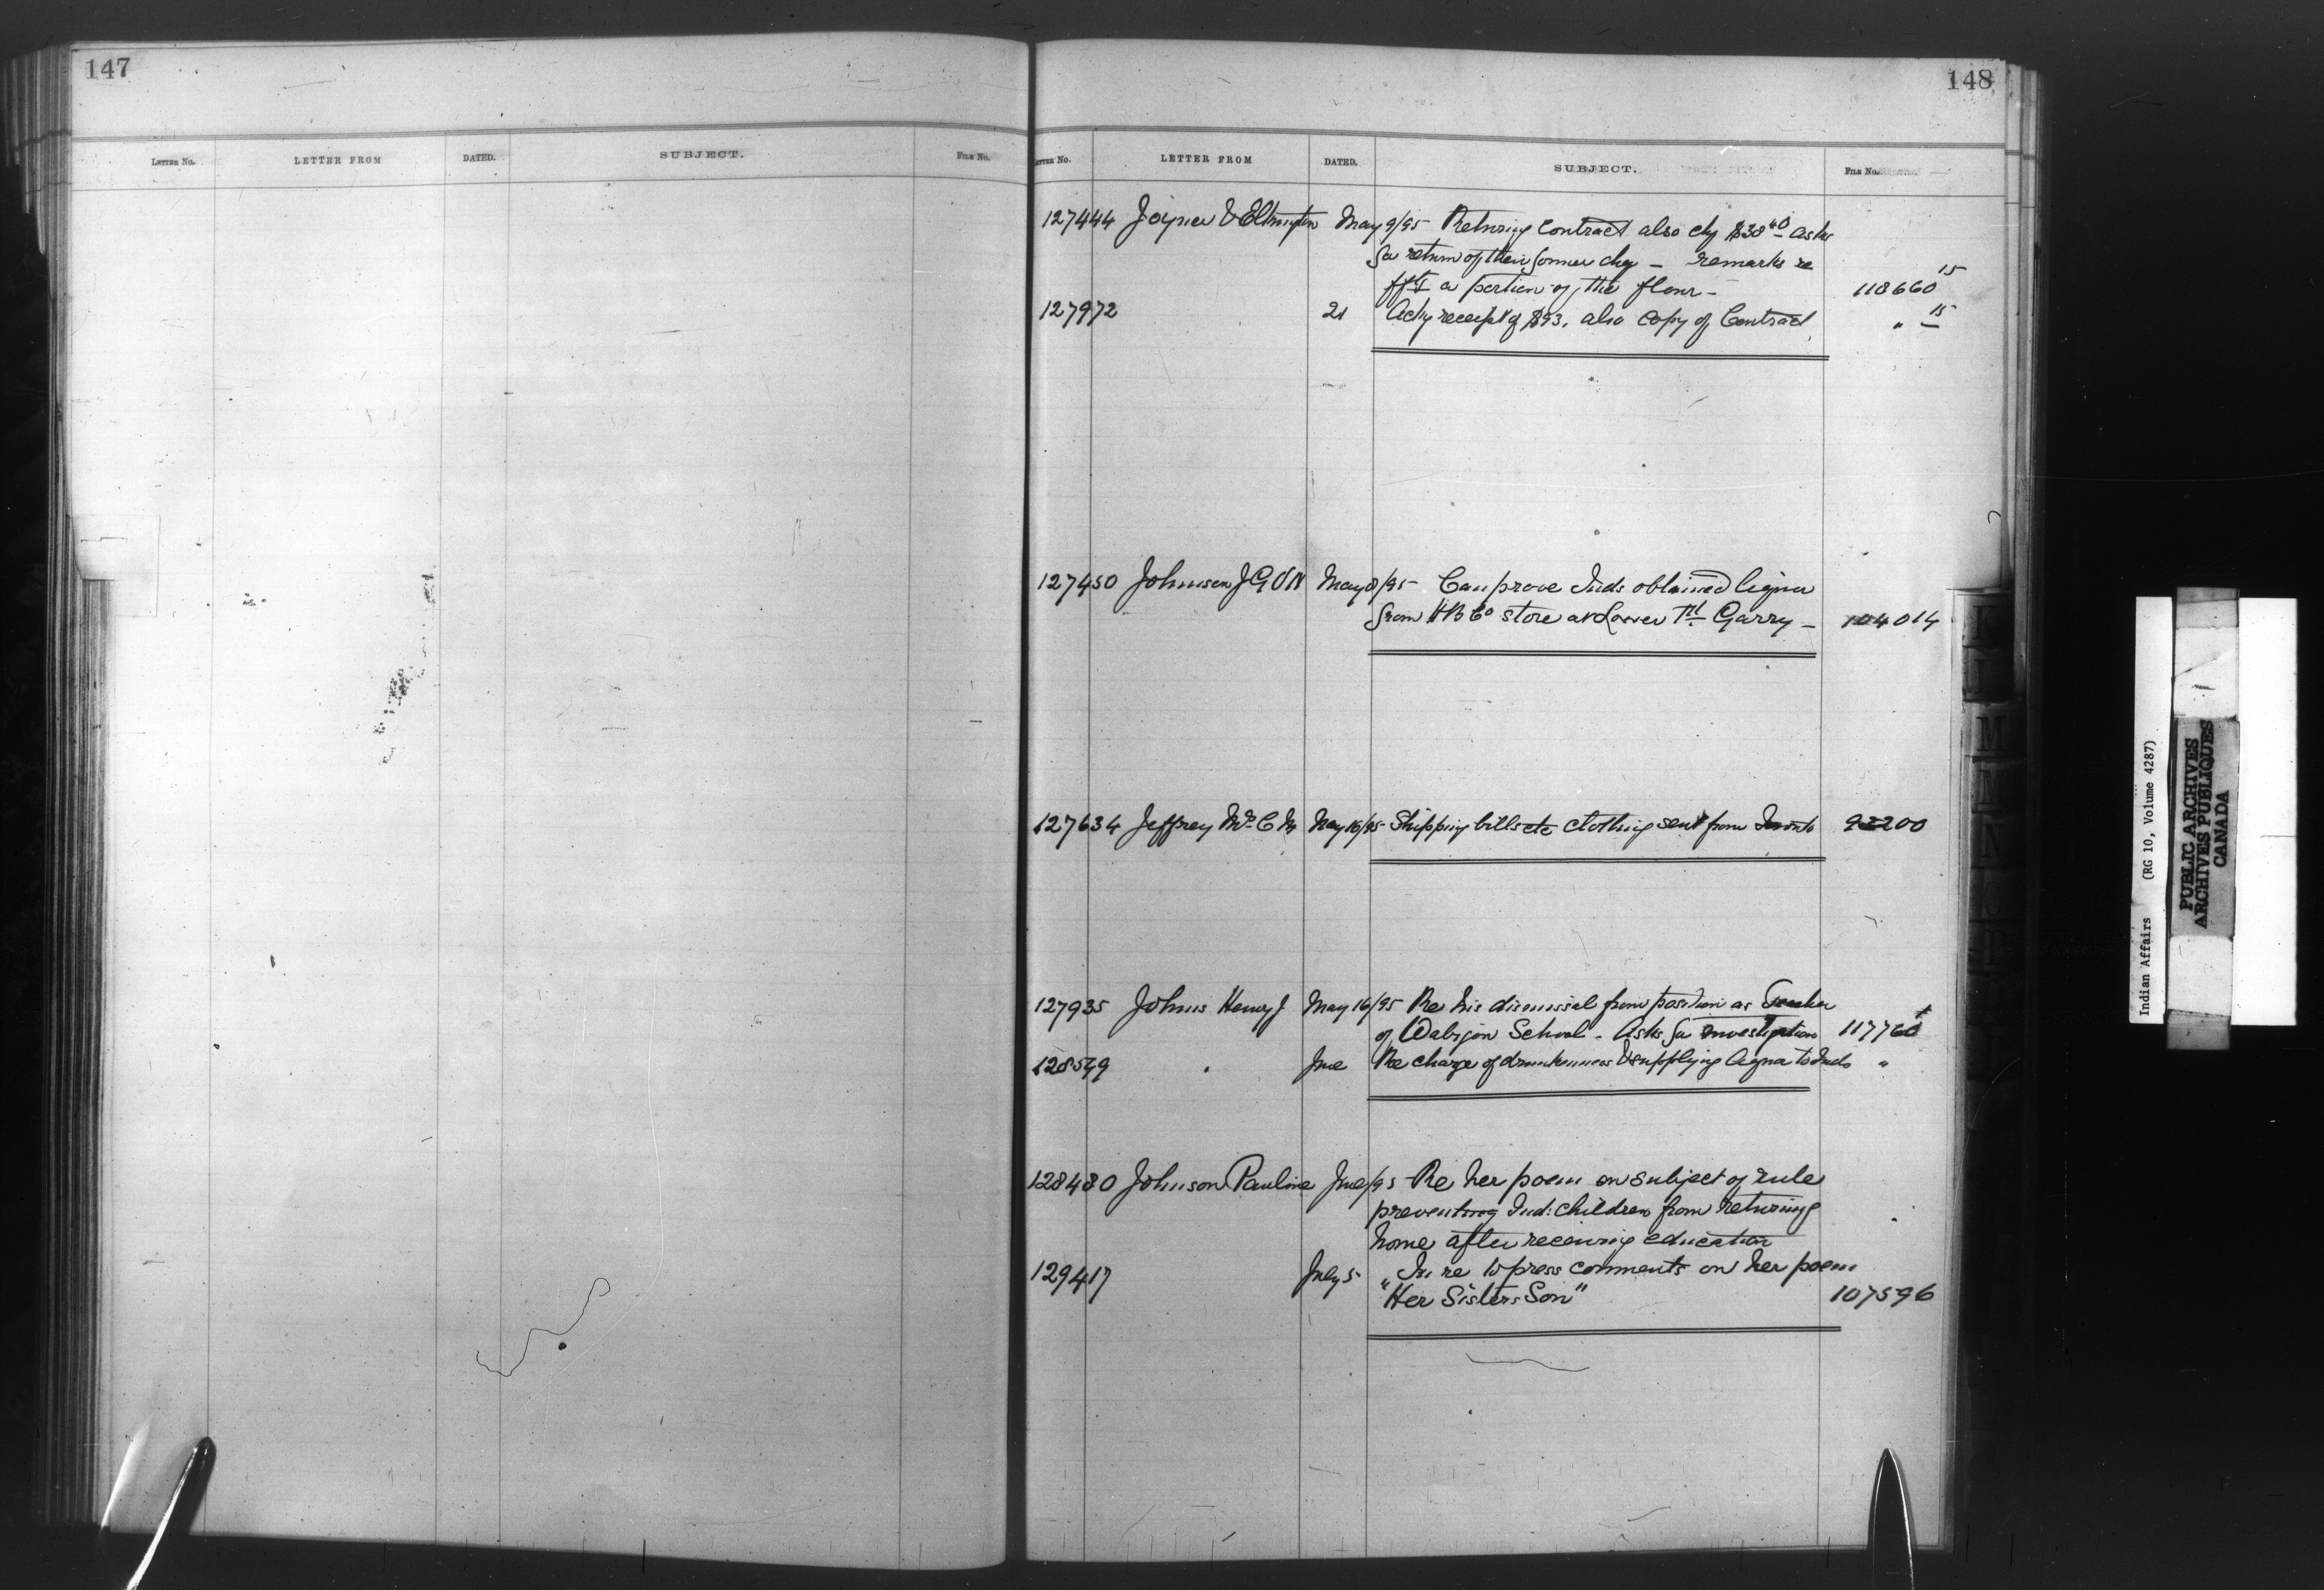 147
LETTER NO. LETTER FROM DATED. SUBJECT. FILE No.
148
LETTER No. LETTER FROM DATED. SUBJECT. FILE No.
127444 Joyner & Elkington May 9/95 Returing Contract also chq $38 40 asks
for return of their former chq — remarks re
a portion of the flour — 118660 15
127972 21 Ackg receipt of $93. also Copy of Contract " 15
127450 Johnson J G V N May 8/95 Can prove Inds obtained liquor
from HB Co store at Lower Ft. Garry — 104014
127634 Jeffrey May 16/95 Shipping bills etc clothing sent from Toronto 92200
127935 Johns Henry J May 16/95 Re his dismissal from position as Teacher
of Wabigon School - Asks for investigation 117760
128599 " Jne Re charge of drunkenness & supplying liquor to Inds "
128480 Johnson Pauline Jne/95 Re her poem on subject of rule
preventing Ind: children from returning
home after receiving education
129417 July 5 In re to press comments on her poem
"Her Sisters Son" 107596
Indian Affairs (RG 10, Volume 4287)
PUBLIC ARCHIVES
ARCHIVES PUBLIQUES
CANADA